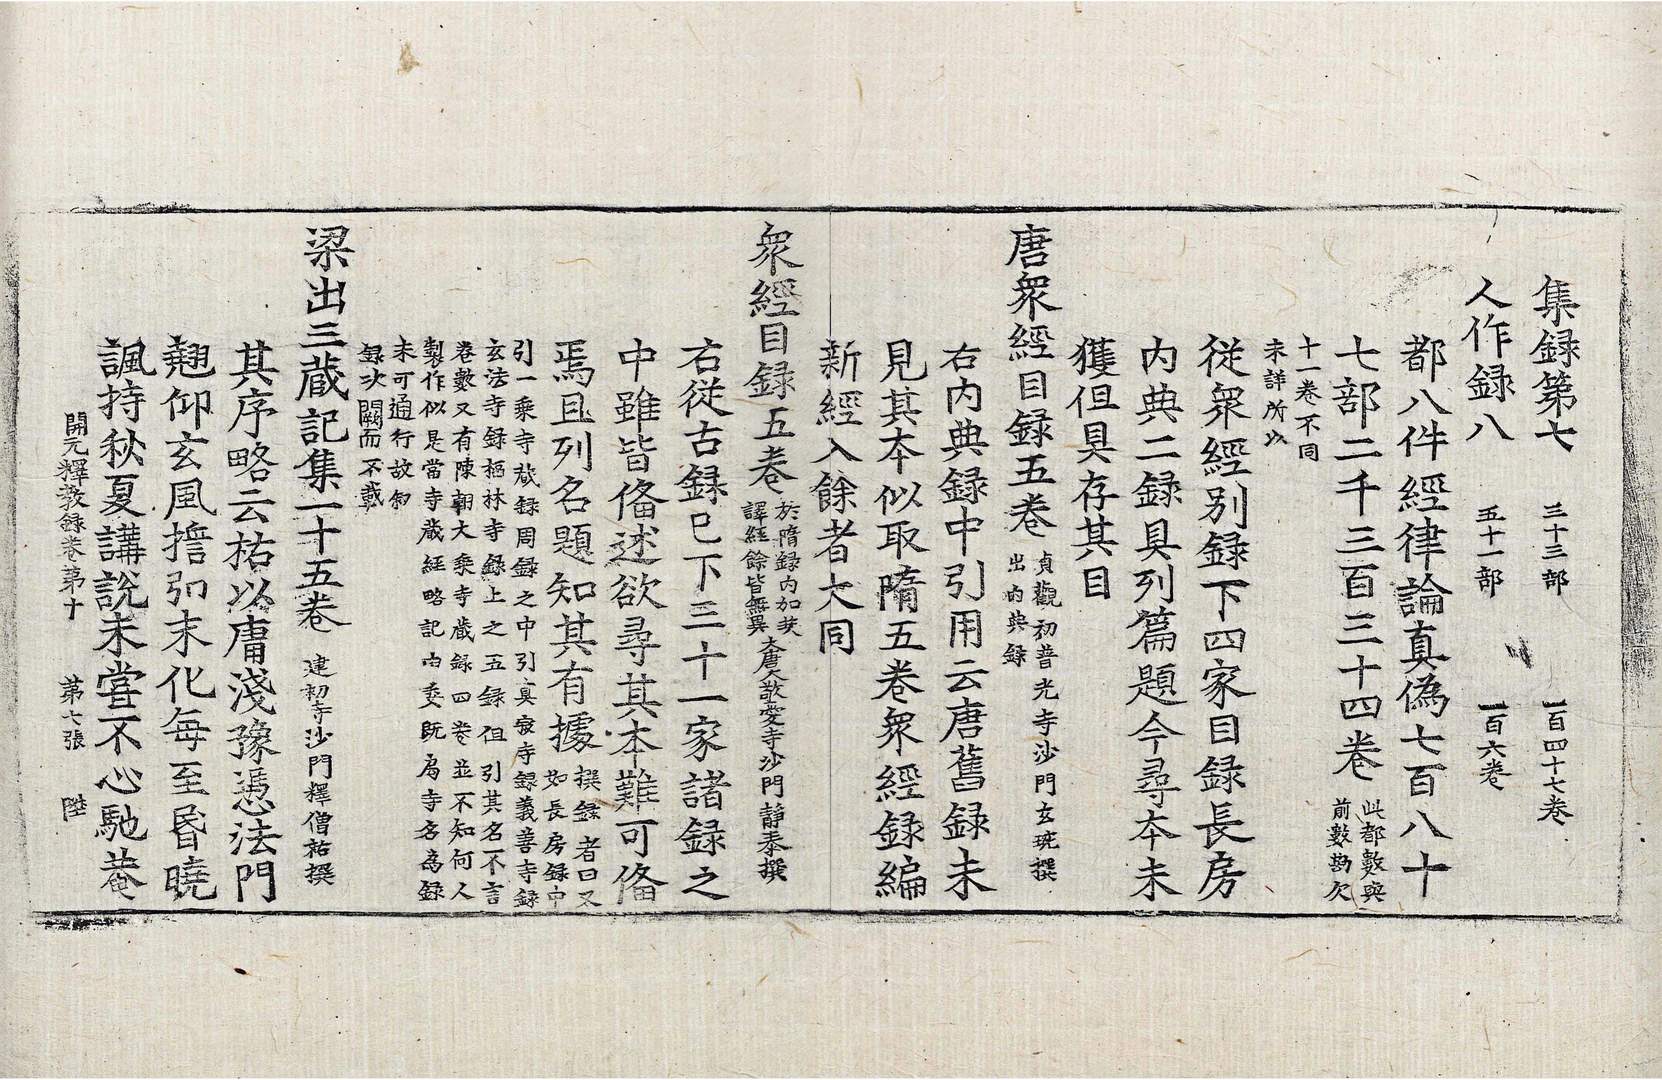 集録第七 三十三部 一百四十七卷
人作録八 五十一部 一百六卷
都八件經律論真偽七百八十
七部二千三百三十四卷 此都數與
前數勘欠
十一卷不同
未詳所以
從衆經别録下四家目録長房
内典二録具列篇題今尋本未
獲但具存其目
唐衆經目録五卷 貞觀初普光寺沙門玄琬撰
出内典録
右内典録中引用云唐舊録未
見其本似取隋五卷衆經録編
新經入餘者大同
衆經目録五卷 於隋録内加奘
譯經餘皆無異 大唐大敬愛寺沙門静泰撰
右從古録已下三十一家諸録之
中雖皆俻述欲尋其本難可俻
焉且列名題知其有據 撰録者曰又
如長房録中
引一乗寺蔵録周録之中引真寂寺録義善寺録
玄法寺録栖林寺録上之五録但引其名不言
卷數又有陳朝大乗寺蔵録四卷並不知何人
製作似是當寺蔵經略記由委既爲寺名為録
未可通行故叙
録次闕而不載
梁出三蔵記集一十五卷 建初寺沙門釋僧祐撰
其序略云祐以庸淺豫憑法門
翹仰玄風誓弘末化每至昬曉
諷持秋夏講説未嘗不心馳菴
開元釋教録卷第十 第七張 陞